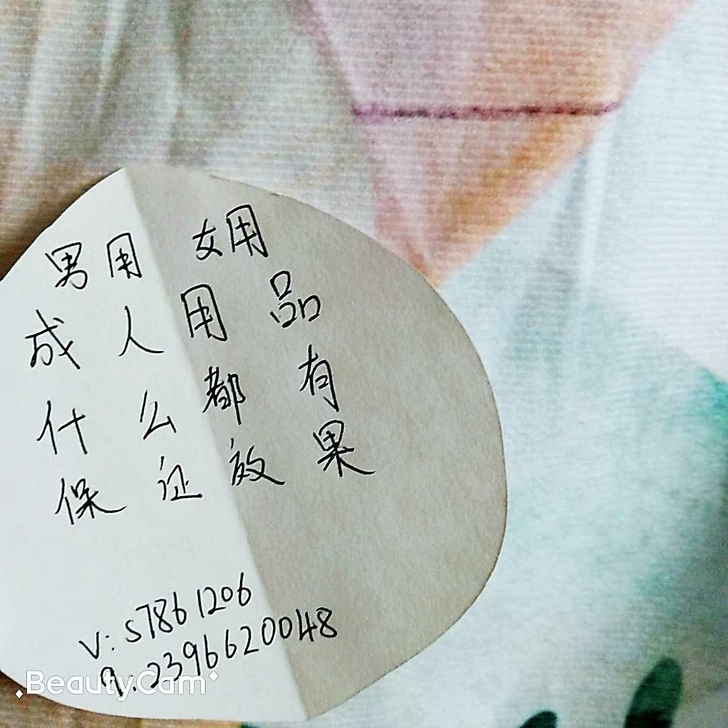 男用 女用
成人用品
什么都有
保证效果
V:S7861206
q.2396620048
BeautyCam